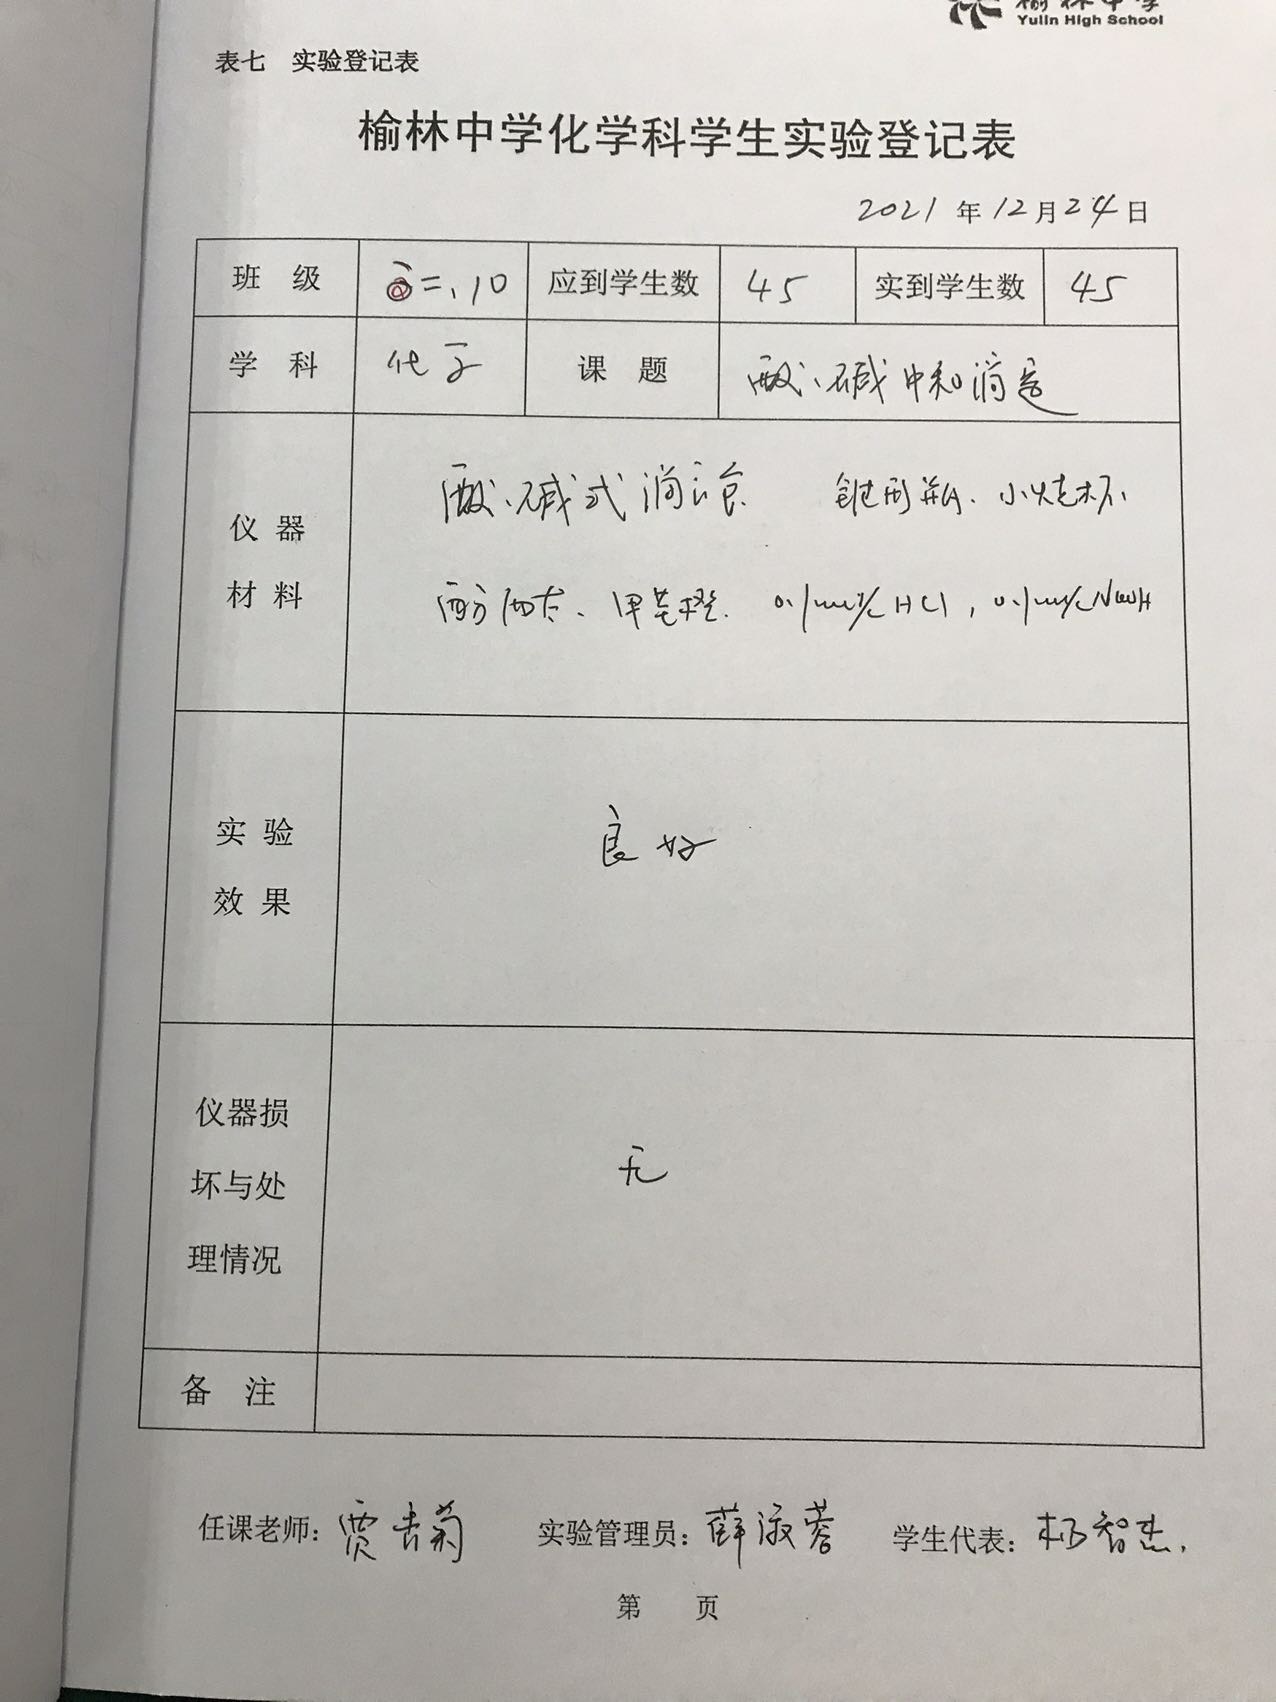 榆林中学
Yulin High School
表七 实验登记表
榆林中学化学科学生实验登记表
2021 年 12 月 24 日
班 级 高二、10 应到学生数 45 实到学生数 45
学 科 化学 课 题 酸、碱中和滴定
酸、碱式滴定管 锥形瓶、小烧杯
仪 器
材 料 酚酞、甲基橙 0.1mol/L HCl, 0.1mol/L NaOH
实 验 良好
效 果
仪器损
坏与处 无
理情况
备 注
任课老师: 贾吉菊 实验管理员: 薛淑蓉 学生代表: 杨智杰.
第 页